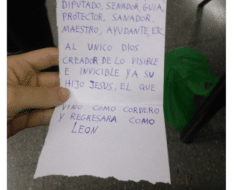 DIPUTADO, SENADOR GUIA,
PROTECTOR, SANADOR,
MAESTRO, AYUDANTE, ETC
AL UNICO DIOS
CREADOR DE LO VISIBLE
E INVICIBLE Y A SU
HIJO JESUS, EL QUE
VINO COMO CORDERO
Y REGRESARA COMO
LEON